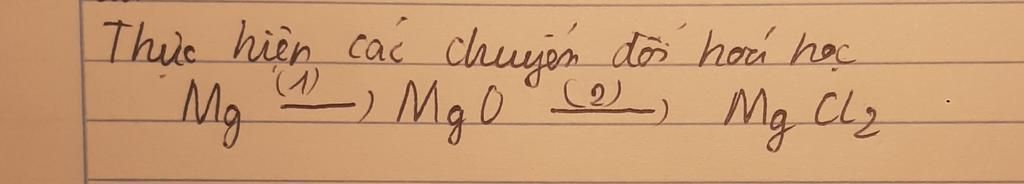 Thực hiện các chuyển đổi hoá học
Mg (1)→ MgO (2)→ MgCl₂